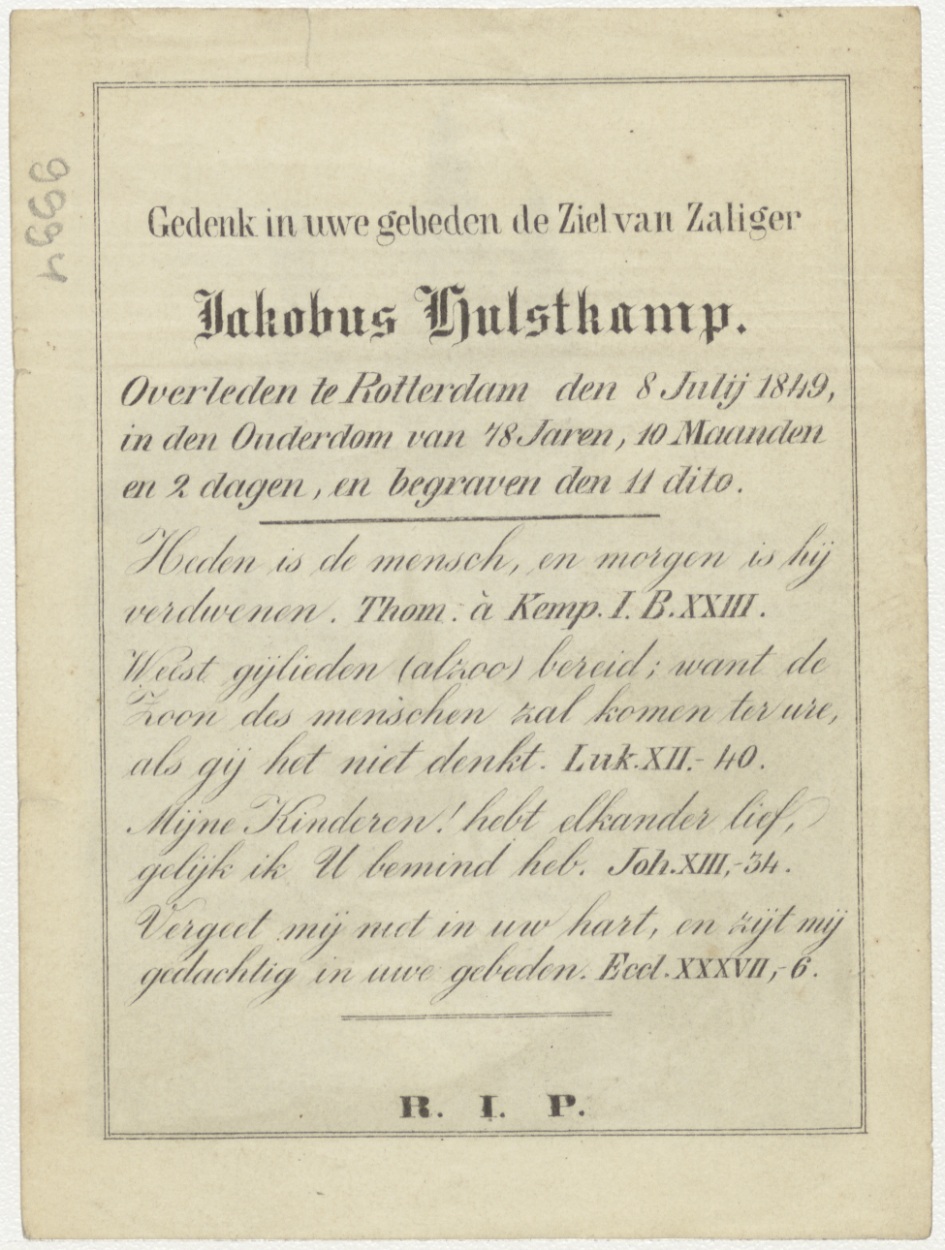 Gedenk in uwe gebeden de Ziel van Zaliger
Jakobus Hulstkamp.
Overleden te Rotterdam den 8 Julij 1849,
in den Ouderdom van 78 Jaren, 10 Maanden
en 2 dagen, en begraven den 11 dito.
Heden is de mensch, en morgen is hij
verdwenen. Thom. à Kemp. I. B. XXIII.
Weest gijlieden (alzoo) bereid; want de
Zoon des menschen zal komen ter ure,
als gij het niet denkt. Luk. XII.- 40.
Mijne Kinderen! hebt elkander lief,
gelijk ik U bemind heb. Joh. XIII,-34.
Vergeet mij niet in uw hart, en zijt mij
gedachtig in uwe gebeden. Eccl. XXXVII,-6.
R. I. P.